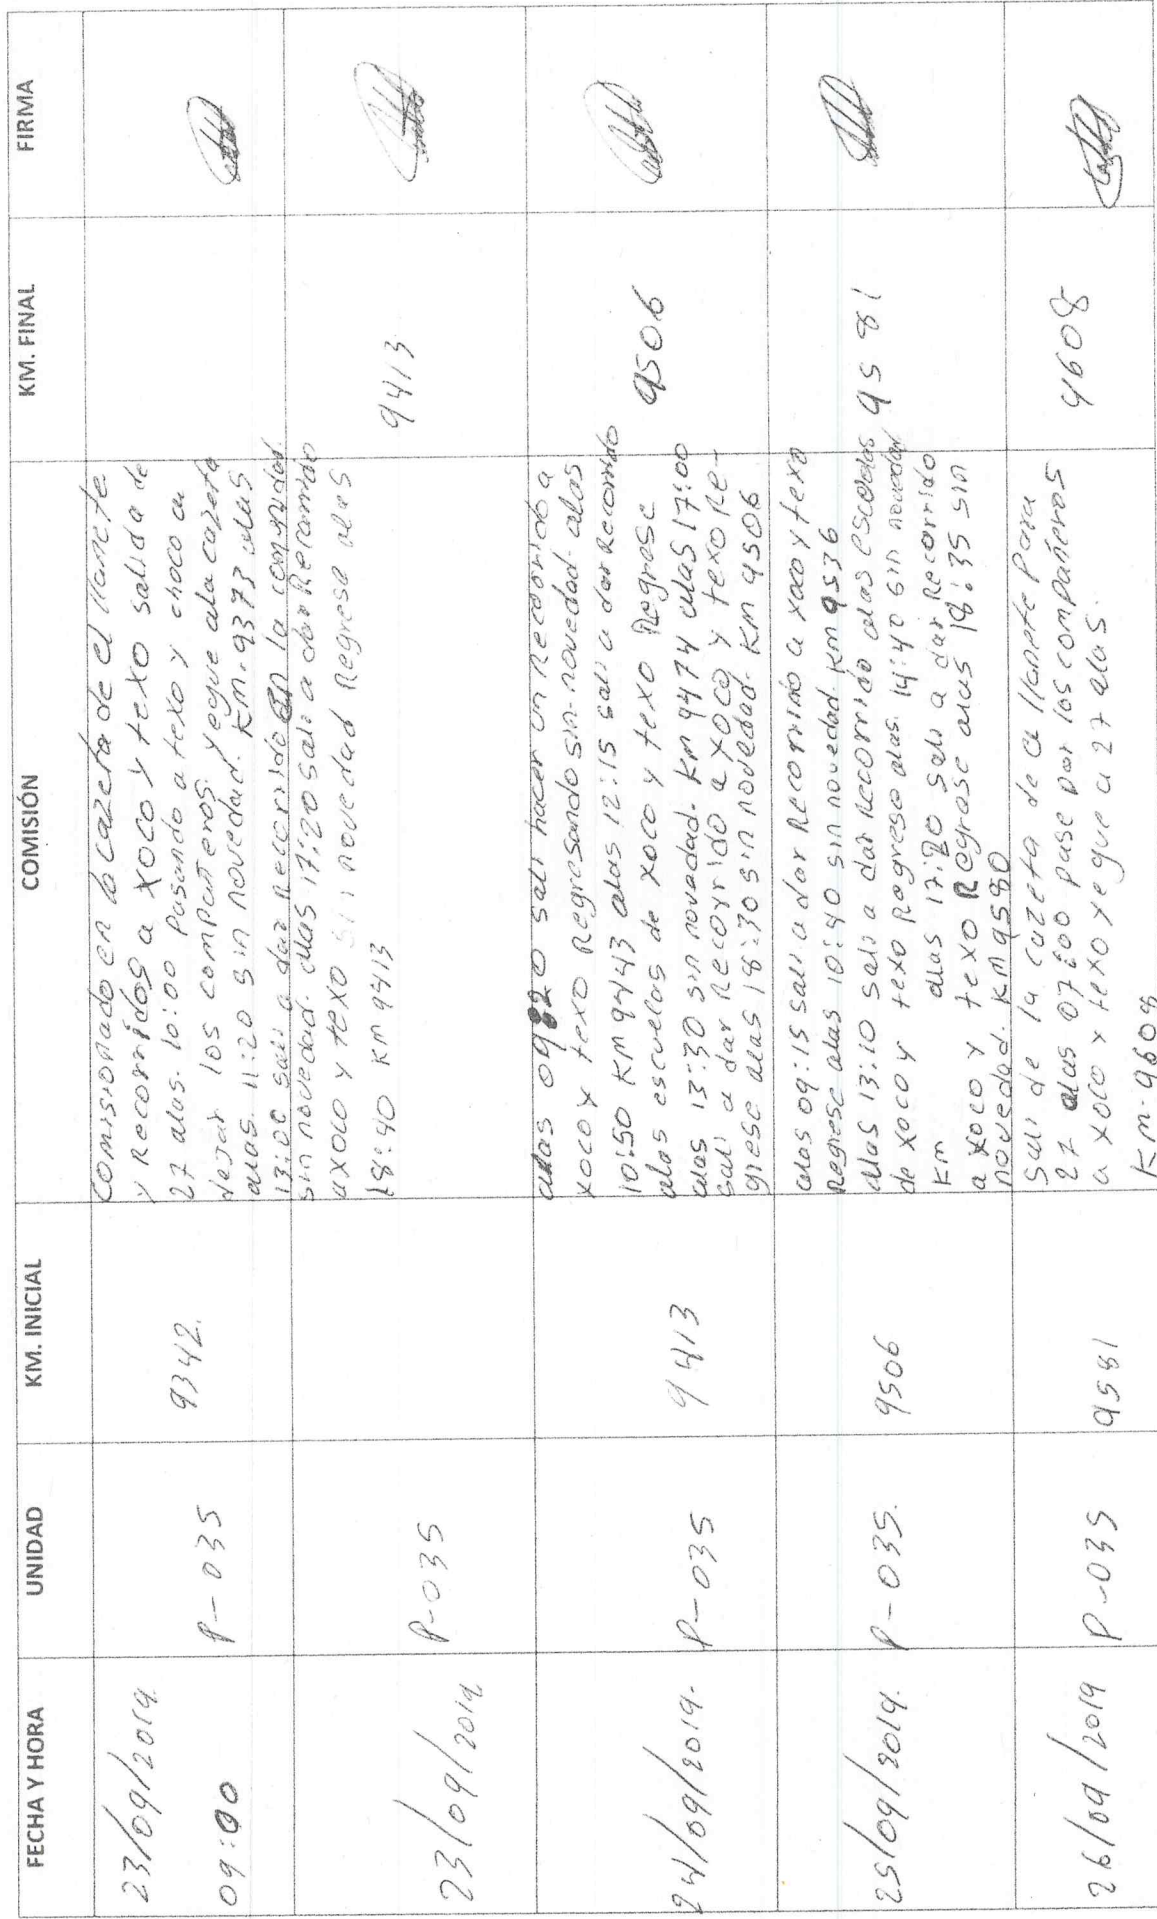 FECHA Y HORA UNIDAD KM. INICIAL COMISIÓN KM. FINAL FIRMA
23/09/2019
09:00
P-035
9342.
Comisionado en la cazeta de el llanete
y Recorridos a xoco y texo salida de
27 alas. 10:00 pasando a texo y choco a
dejar los compañeros. yegue ala cazeta
alas. 11:20 sin novedad. Km. 9373 alas
13:00 sali a dar Recorrido en la comunidad.
sin novedad. alas 17:20 sali a dar Recorrido
23/09/2019
P-035
a xoco y texo sin novedad Regrese alas
18:40 Km 9413
9413
24/09/2019.
P-035
9413
alas 0920 sali hacer un recorrido a
xoco y texo Regresando sin-novedad. alas
10:50 Km 9443 alas 12:15 sali a dar Recorrido
alas escuelas de xoco y texo Regrese
alas 13:30 sin novedad. Km 9474 alas 17:00
sali a dar Recorrido a xoco y texo Re-
grese alas 18:30 sin novedad. Km 9506
9506
25/09/2019.
P-035.
9506
alas 09:15 sali a dar Recorrido a xoco y texo
Regrese alas 10:40 sin novedad. Km 9536
alas 13:10 sali a dar recorrido alas escuelas
de xoco y texo Regreso alas. 14:40 sin novedad
Km alas 17:20 sali a dar Recorrido
a xoco y texo Regrese alas 18:35 sin
novedad. Km 9580
9581
26/09/2019
P-035
9581
Sali de la cazeta de el llanete Para
27 alas 07:00 pase por los compañeros
a xoco y texo yegue a 27 alas.
Km. 9608
9608